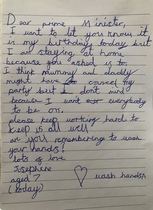 Dear prime Minister,
I want to let you know it
is my birthday today but
am staying at home
because you asked us to.
mummy and daddy
might have cancel my
party but I dont mind
because I want everybody
to be ok.
please keep working hard to
keep us all well
are you remembering to wash
your hands?
lots of love
Josephine
aged 7
(today)
wash hands